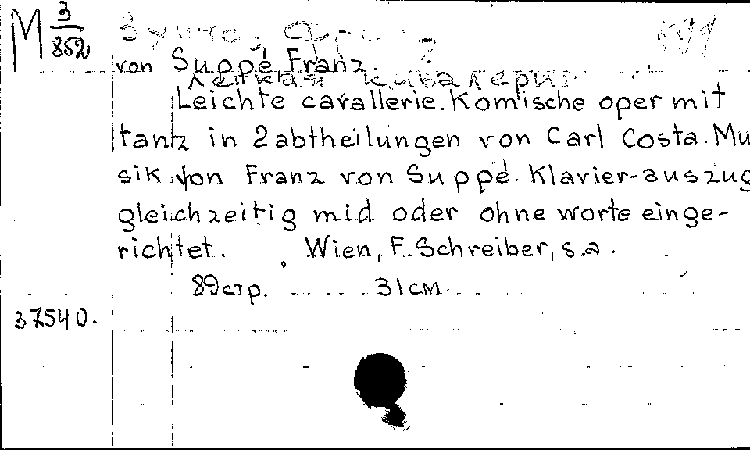 M 3/852
von Suppé Franz
Leichte cavallerie. Komische oper mit
tanz in 2 abtheilungen von Carl Costa. Mu
sik von Franz von Suppé. Klavier-auszug
gleichzeitig mid oder ohne worte einge-
richtet. Wien, F. Schreiber, s.a.
89 стр. 31 см
37540.